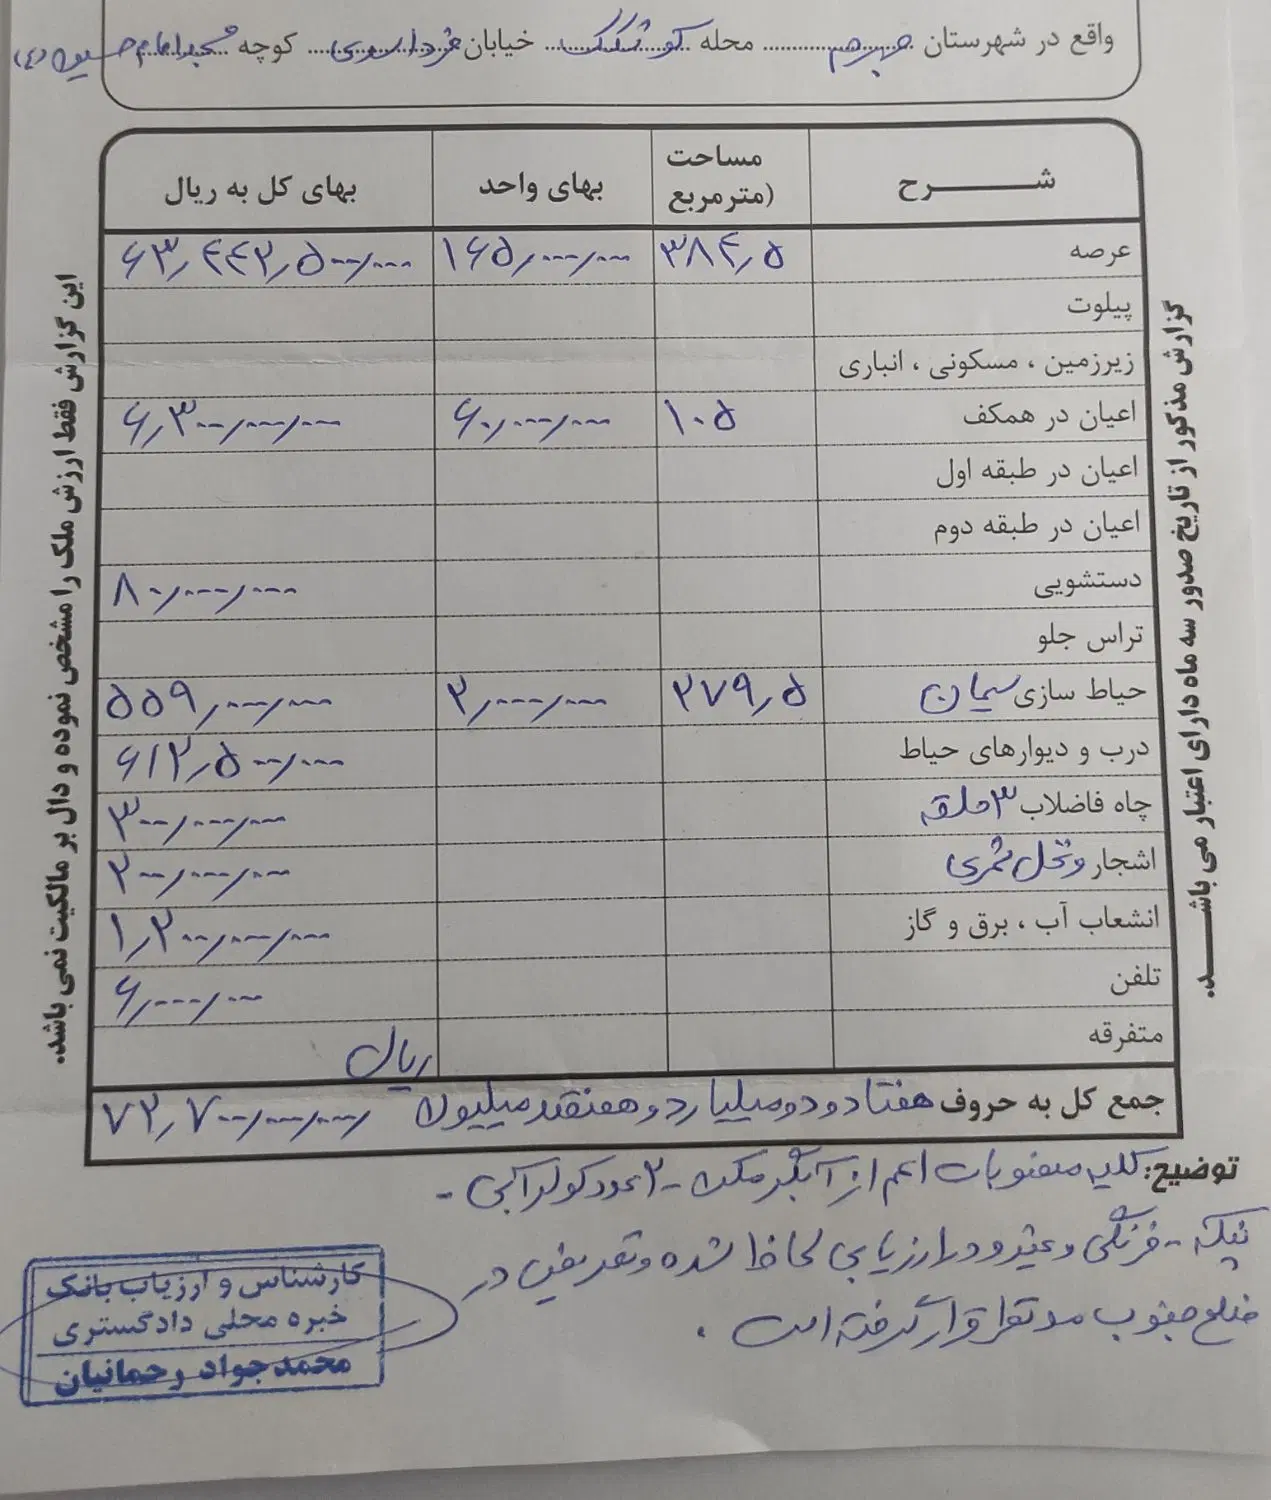 واقع در شهرستان جهرم محله کوشکک خیابان کوچه مسجد امام حسین (ع)
شرح مساحت (مترمربع بهای واحد بهای کل به ریال
عرصه ۳۸۴٫۵ ۱۶۵٫۰۰۰٫۰۰۰ ۶۳٫۴۴۲٫۵۰۰٫۰۰۰
پیلوت
زیرزمین ، مسکونی ، انباری
اعیان در همکف ۱۰۵ ۶۰٫۰۰۰٫۰۰۰ ۶٫۳۰۰٫۰۰۰٫۰۰۰
اعیان در طبقه اول
اعیان در طبقه دوم
دستشویی ۸۰٫۰۰۰٫۰۰۰
تراس جلو
حیاط سازی سیمان ۲۷۹٫۵ ۲٫۰۰۰٫۰۰۰ ۵۵۹٫۰۰۰٫۰۰۰
درب و دیوارهای حیاط ۶۱۲٫۵۰۰٫۰۰۰
چاه فاضلاب ۳ حلقه ۳۰۰٫۰۰۰٫۰۰۰
اشجار و نخل ثمری ۲۰۰٫۰۰۰٫۰۰۰
انشعاب آب ، برق و گاز ۱٫۲۰۰٫۰۰۰٫۰۰۰
تلفن ۶٫۰۰۰٫۰۰۰
متفرقه
ریال
جمع کل به حروف هفتاد و دو میلیارد و هفتصد میلیون ۷۲٫۷۰۰٫۰۰۰٫۰۰۰
توضیح: کلیه منصوبات اعم از آبگرمکن - ۲ عدد کولر آبی -
- فرنگی و غیره در ارزیابی لحاظ شده و در
ضلع جنوب قرار گرفته است .
گزارش مذکور از تاریخ صدور سه ماه دارای اعتبار می باشد.
این گزارش فقط ارزش ملک را مشخص نموده و دال بر مالکیت نمی باشد.
کارشناس و ارزیاب بانک
خبره محلی دادگستری
محمدجواد رحمانیان